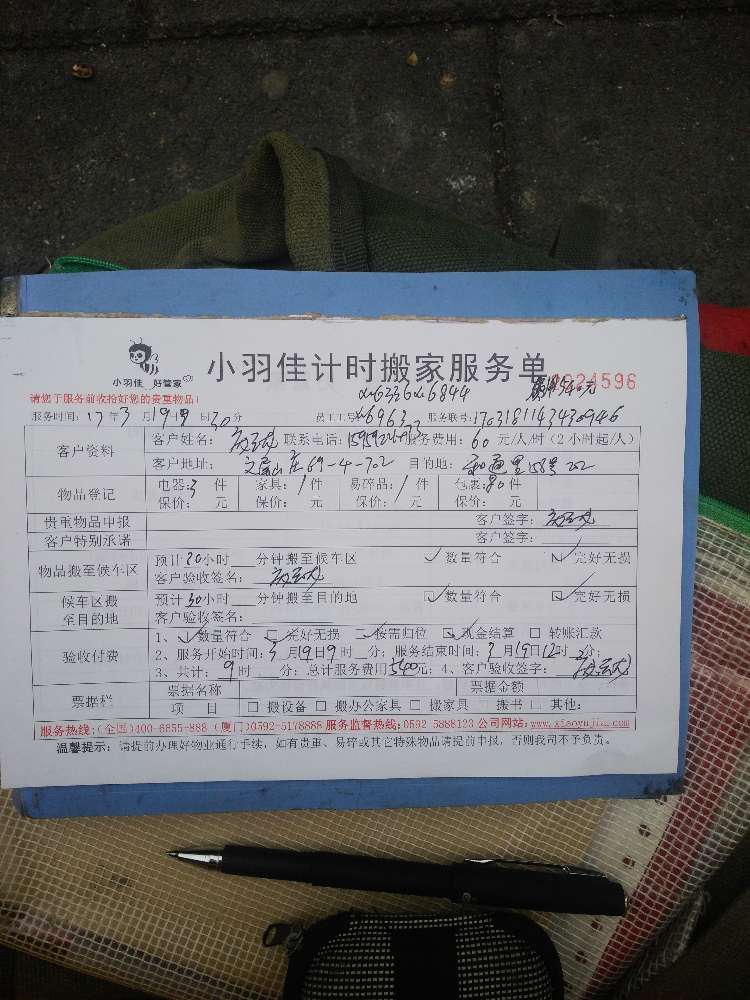 小羽佳 好管家
小羽佳计时搬家服务单
请您于服务前收拾好您的贵重物品!
α6336 α6844
540元
服务时间:17年3月19日9时30分 员工工号: α6963 服务联号:1703181143430946
客户资料
客户姓名: 联系电话: 服务费用:60元/人/时(2小时起/人)
客户地址: 文屏山庄69-4-702 目的地:
物品登记
电器:3件 家具:1件 易碎品:1件 包裹:80件
保价: 元 保价: 元 保价: 元 保价: 元
贵重物品申报 客户签字:
客户特别承诺 客户签字:
物品搬至候车区
预计20小时 分钟搬至候车区 ✓数量符合 ✓完好无损
客户验收签名:
候车区搬至目的地
预计30小时 分钟搬至目的地 ✓数量符合 ✓完好无损
客户验收签名:
验收付费
1、✓数量符合 完好无损 按需归位 ✓现金结算 □转账汇款
2、服务开始时间:3月19日9时 分;服务结束时间:3月19日12时 分;
3、共计:9时 分;总计服务费用540元;4、客户验收签字:
票据栏
票据名称 票据金额
项 目 □搬设备 □搬办公家具 □搬家具 □搬书 □其他:
服务热线:(全国)400-6855-888 (厦门)0592-5178888 服务监督热线:0592-5888123 公司网站:www.xiaoyujia.com
温馨提示: 请提前办理好物业通行手续,如有贵重、易碎或其它特殊物品请提前申报,否则我司不予负责。